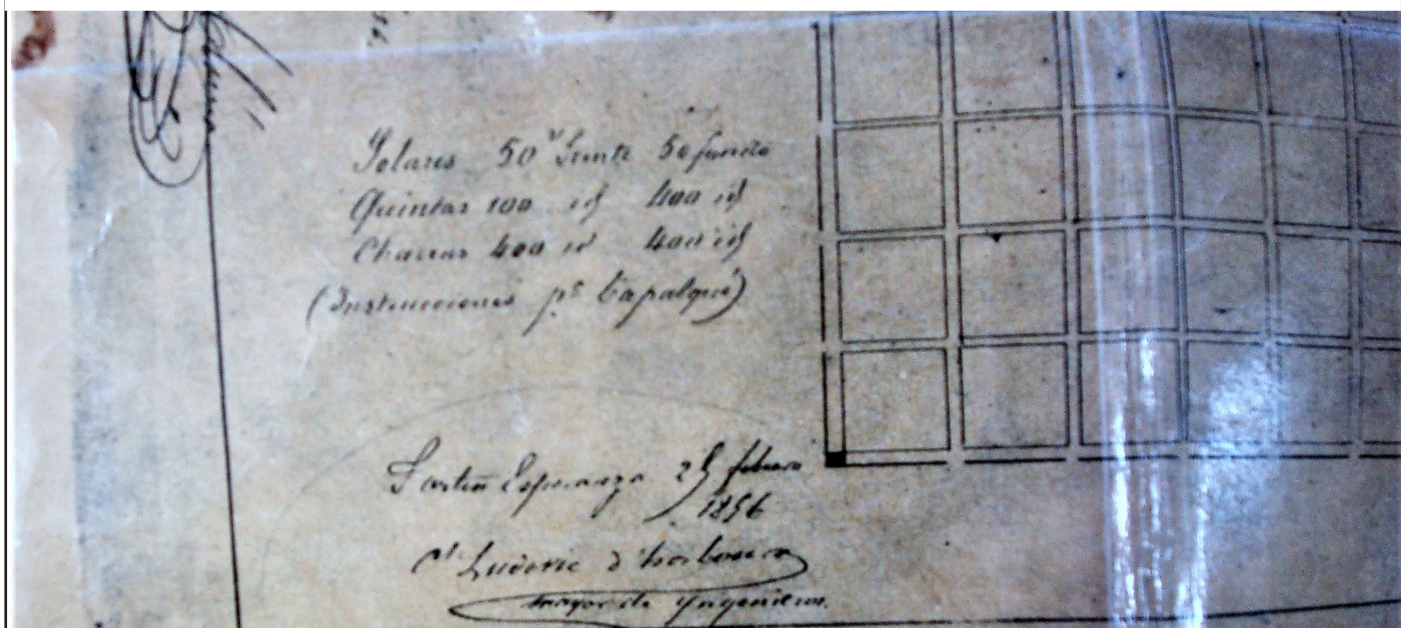 Solares 50 v frente 50 fondo
Quintas 100 id 400 id
Chacras 400 id 400 id
(Instrucciones pa Tapalqué)
Fortin Esperanza 25 febrero
1856
Ludovic d'
mayor de Yngenieros.